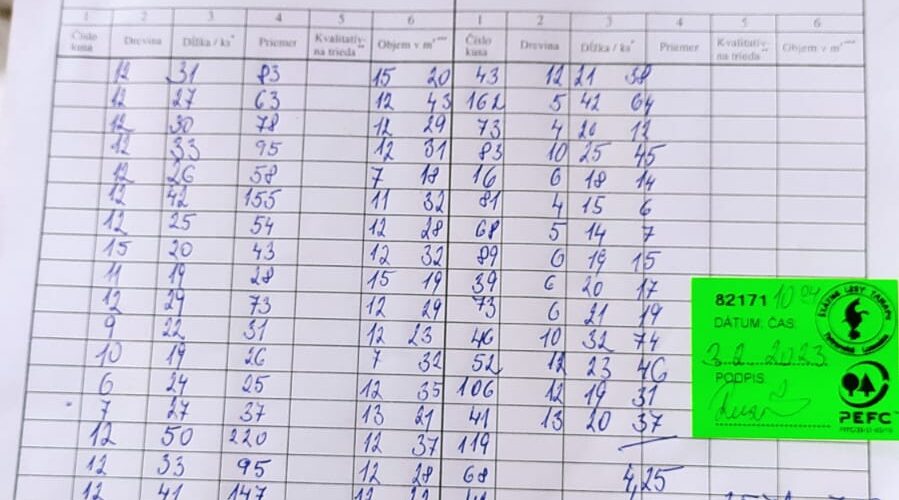 1 2 3 4 5 6 1 2 3 4 5 6
Číslo kusa Drevina Dĺžka / ks* Priemer Kvalitatív-na trieda** Objem v m³*** Číslo kusa Drevina Dĺžka / ks* Priemer Kvalitatív-na trieda** Objem v m³***
12 31 83 15 20 43 12 21 38
12 27 63 12 43 162 5 42 64
12 30 78 12 29 73 4 20 12
12 33 95 12 31 83 10 25 45
12 26 58 7 18 16 6 18 14
12 42 155 11 32 81 4 15 6
12 25 54 12 28 68 5 14 7
15 20 43 12 32 89 6 19 15
11 19 28 15 19 39 6 20 17
12 29 73 12 29 73 6 21 19
9 22 31 12 23 46 10 32 74
10 19 26 7 32 52 12 23 46
6 24 25 12 35 106 12 19 31
7 27 37 13 21 41 13 20 37
12 50 220 12 37 119
12 33 95 12 28 68 4,25
12 41 147 12
82171
DÁTUM, ČAS:
3.2. 2023
PODPIS:
ŠTÁTNE LESY TANAPU
PEFC